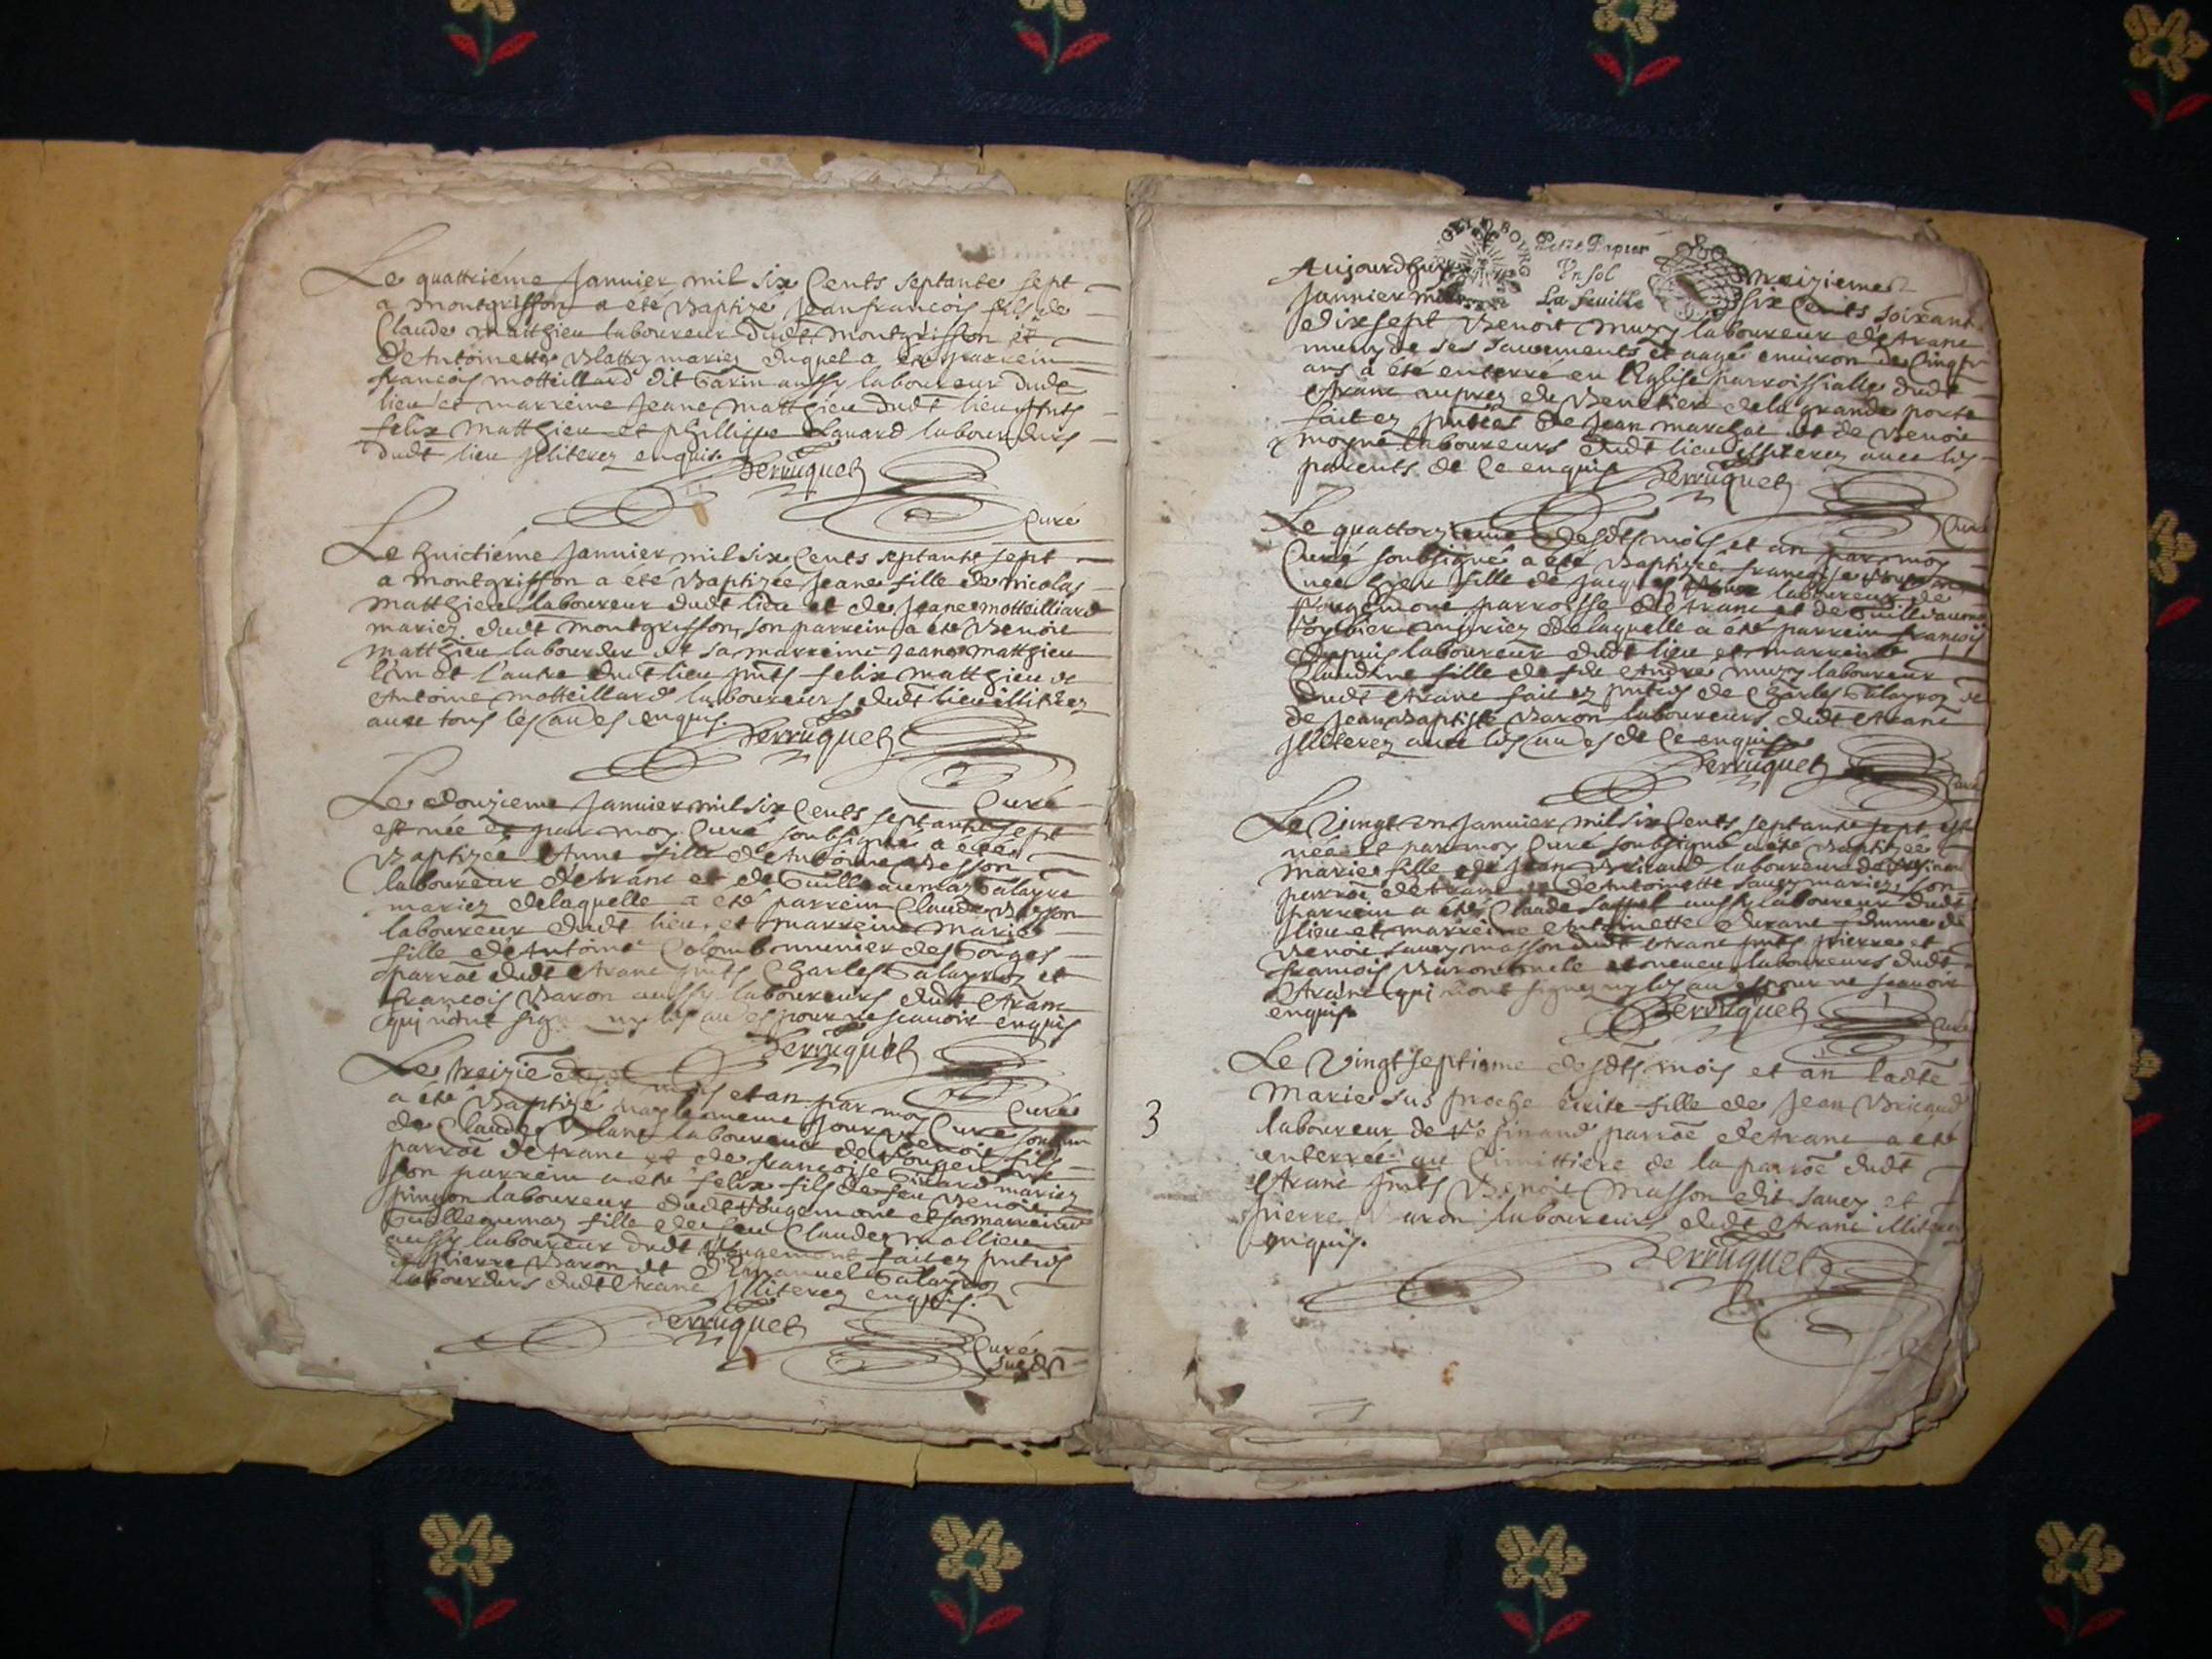 Le quattriéme Jannier mil six Cents septante sept
a montgriffon a eté Baptizé Jean francois fils de
Claude matthieu laboureur dudt montgriffon et
d'Antoinette mariez duquel a eté parrein
francois motteillard dit Garin aussy laboureur dudt
lieu et marreine Jeane matthieu dudt lieu pnts
felix matthieu et phillippe laboureurs
dudt lieu Illiterez enquis.
Perruquet
Curé
Le huictiéme Jannier mil six Cents septante sept
a montgriffon a été Baptizée Jeane fille de nicolas
matthieu laboureur dudt lieu et de Jeane motteilliard
mariez dudt montgriffon, son parrein a eté Benoit
matthieu laboureur et sa marreine Jeane matthieu
l'un et l'autre dudt lieu pnts felix matthieu et
Antoine motteillard laboureurs dudt lieu illiterez
avec tous les enquis.
Perruquet
Curé
Le douzieme Jannier mil six Cents septante sept
est née et par moy Curé soubsigné a eté
Baptizée Anne fille d'Antoine Besson
laboureur d'Aranc et de Guillaumaz Galayru
mariez de laquelle a eté parrein Claude
laboureur dudt lieu et marreine marie
fille d'Antoine Colomb munier des Gorges
parroe dudt Aranc pnts Charles et
francois Baron aussy laboureurs dudt Aranc
qui n'ont pour ne scauoir enquis
Perruquet
Curé
Le treizie mois et an par moy Curé
a été Baptizé nay le meme jour Benoit fils
de Claude Blanc laboureur de Rougemont
parroe d'Aranc et de francoise Girard mariez
son parrein a eté felix fils de feu Benoit
pingon laboureur dudt Rougemont et sa marreine
Guillaumaz fille de feu Claude mallieu
aussy laboureur dudt Rougemont faict ez pntces
de pierre Baron et d'Emanuel
laboureurs dudt Aranc Illiterez enquis.
Perruquet
Curé
susdt
Petit Papier
Un sol
La feuille
Aujourdhuy treizieme
Jannier mil six Cents soixante
dix sept Benoit muzy laboureur d'Aranc
muny de ses sacrements et aagé enuiron de Cinqte
ans a été enterré en l'Eglise parroissialle dudt
Aranc aupres du Benetier de la grande porte
fait ez pntces de Jean et de Benoit
moyne laboureurs dudt lieu illiterez auec les
parents de Ce enquis
Perruquet
Curé
Le quattorzieme desdts mois et an par moy
Curé soubsigné a eté Baptizée francoise
née hier fille de Jacques laboureur de
Rougemont parroisse d'Aranc et de Guillaumaz
mariez de laquelle a été parrein francois
Dupuis laboureur dudt lieu et marreine
Claudine fille de feu Andre muzy laboureur
dudt Aranc fait ez pntces de Charles et
de Jean Baptiste Baron laboureurs dudt Aranc
Illiterez auec les de Ce enquis
Perruquet
Curé
Le Vingt un Jannier mil six Cents septante sept est
née et par moy Curé soubsigné a eté Baptizée
marie fille de Jean Bricaud laboureur de
parroe d'Aranc et d'Antoinette Sauey mariez, son
parrein a été Claude aussy laboureur dudt
lieu et marreine Antoinette Durane femme de
Benoit Sauey masson dudt Aranc pnts pierre et
francois Baron oncle et neueu laboureurs dudt
Aranc qui n'ont signez ny les pour ne scauoir
enquis
Perruquet
Curé
Le Vingt septieme desdts mois et an ladte
Marie sus proche écrite fille de Jean Bricaud
laboureur de parroe d'Aranc a eté
enterrée au Cimittiere de la parroe dudt
Aranc pnts Benoit Masson dit Sauey et
pierre Baron laboureurs dudt Aranc illiterez
enquis.
Perruquet
3